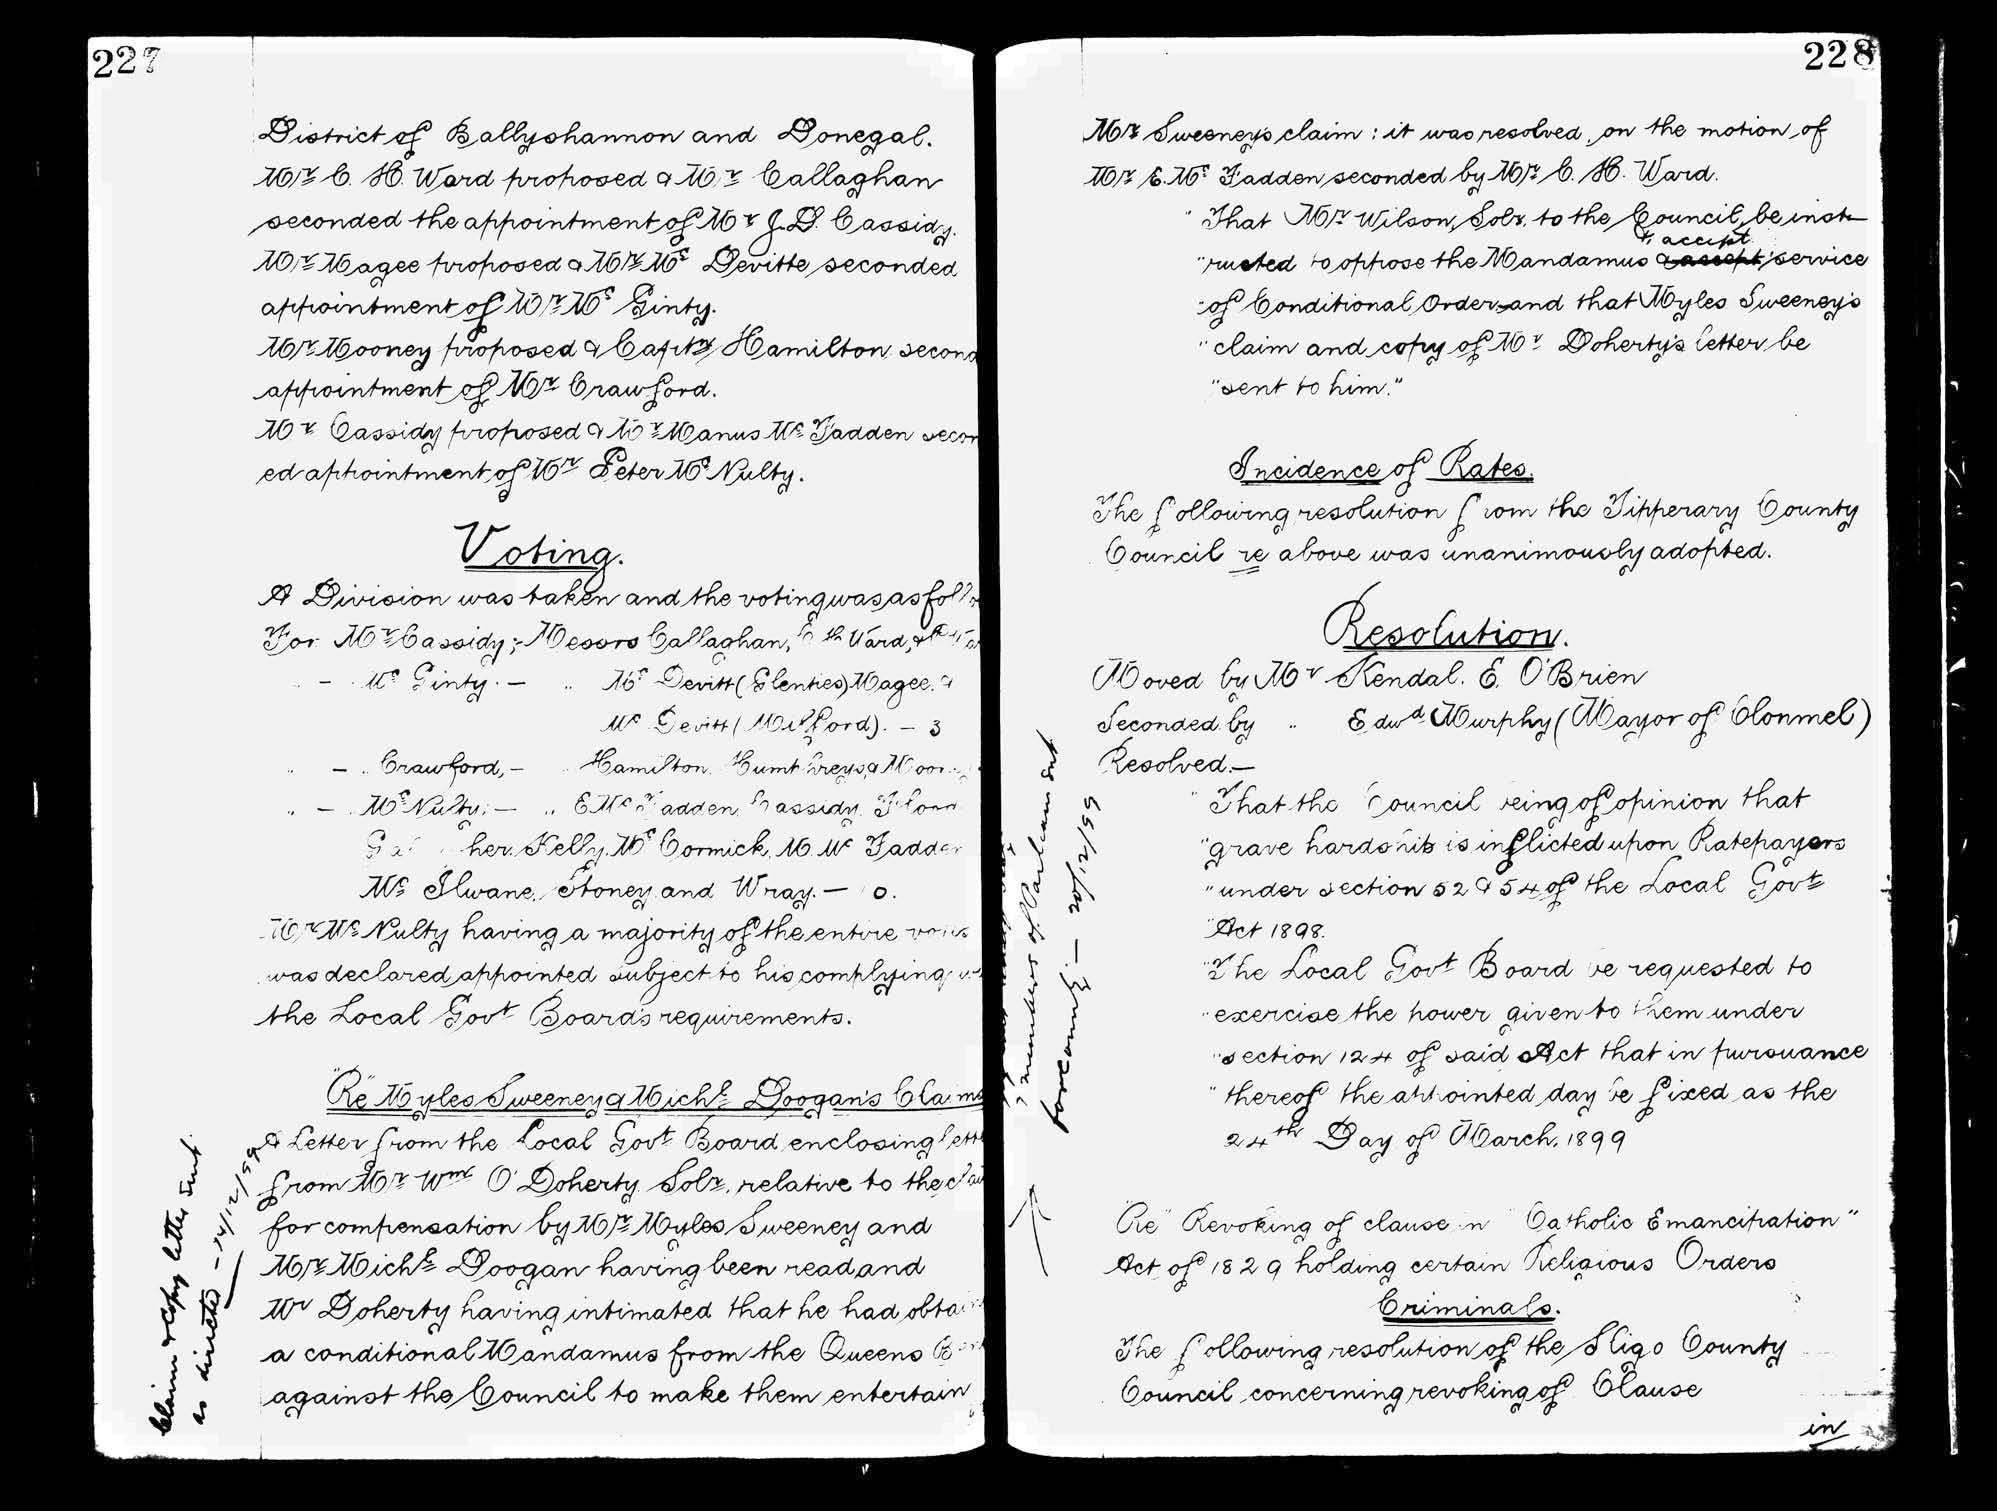 227
District of Ballyshannon and Donegal.
Mr C. H. Ward proposed & Mr Callaghan
seconded the appointment of Mr J. D. Cassidy.
Mr Magee proposed & Mr Mc Devitte seconded
appointment of Mr Mc Ginty.
Mr Mooney proposed & Captn Hamilton second
appointment of Mr Crawford.
Mr Cassidy proposed & Mr Manus Mc Fadden secon
ed appointment of Mr Peter Mc Nulty.
Voting.
A Division was taken and the voting was as follo
For Mr Cassidy; Messrs Callaghan, C H Ward, &
" - " Mc Ginty. - " Mc Devitt (Glenties) Magee, &
Mc Devitt (Milford). - 3
" - " Crawford, - " Hamilton, Humphreys, & Moon
" - " Mc Nulty; - " E Mc Fadden, Cassidy, Flood
Gallagher, Kelly, Mc Cormick, M. Mc Fadden
Mc Ilwane, Stoney and Wray. -
Mr Mc Nulty having a majority of the entire votes
was declared appointed subject to his complying
the Local Govt Board's requirements.
"Re" Myles Sweeney & Michl Doogan's Claims
A Letter from the Local Govt Board enclosing lett
from Mr Wm O'Doherty Solr. relative to the clai
for compensation by Mr Myles Sweeney and
Mr Michl Doogan having been read, and
Mr Doherty having intimated that he had obtain
a conditional Mandamus from the Queens Ben
against the Council to make them entertain
Claim & copy letter sent
as directed - 14/12/99
228
Mr Sweeney's claim: it was resolved, on the motion of
Mr E. Mc Fadden, seconded by Mr C. H. Ward.
"That Mr Wilson, Solr. to the Council, be inst-
& accept
"ructed to oppose the Mandamus & accept service
"of Conditional Order and that Myles Sweeney's
"claim and copy of Mr Doherty's letter be
"sent to him."
Incidence of Rates.
The following resolution from the Tipperary County
Council re above was unanimously adopted.
Resolution.
Moved by Mr Kendal. E. O'Brien
Seconded by " Edwd Murphy (Mayor of Clonmel)
Resolved:-
"That the Council being of opinion that
"grave hardship is inflicted upon Ratepayers
"under section 52 & 54 of the Local Govt
"Act 1898.
"The Local Govt Board be requested to
"exercise the power given to them under
"section 124 of said Act that in pursuance
"thereof the appointed day be fixed as the
24th Day of March, 1899
members of Parliament
for County - 20/12/99
"Re" Revoking of clause in "Catholic Emancipation"
Act of 1829 holding certain Religious Orders
Criminals.
The following resolution of the Sligo County
Council concerning revoking of Clause
in